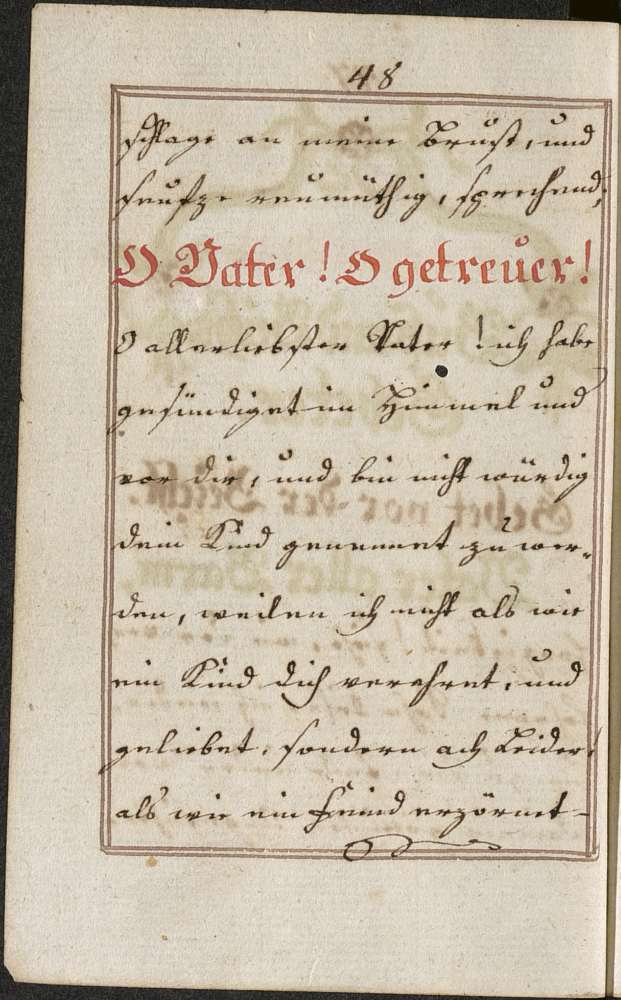 48
schlage an meine Brust, und
seufze reumüthig, sprechend;
O Vater! O getreüer!
O allerliebster Vater! ich habe
gesündiget im Himmel und
vor dir, und bin nicht würdig
dein Kind genennet zu wer-
den, weilen ich nicht als wie
ein Kind dich verehret, und
geliebet, sondern ach Leider!
als wie ein Feind erzörnet-